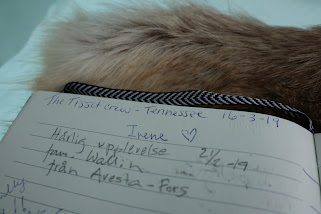 The Tissot crew - Tennessee 16-3-19
Irene ♡
Härlig upplevelse 21/2-19
fam. Wallin
från Avesta-Fors